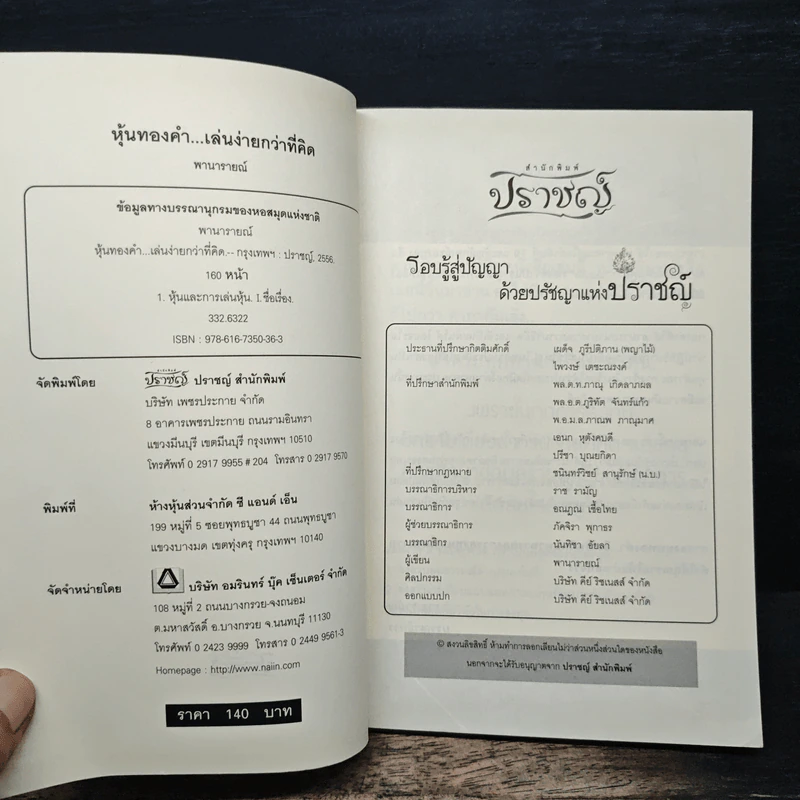 หุ้นทองคำ...เล่นง่ายกว่าที่คิด
พานารายณ์
ข้อมูลทางบรรณานุกรมของหอสมุดแห่งชาติ
พานารายณ์
หุ้นทองคำ...เล่นง่ายกว่าที่คิด.-- กรุงเทพฯ : ปราชญ์, 2556.
160 หน้า
1. หุ้นและการเล่นหุ้น. I. ชื่อเรื่อง.
332.6322
ISBN : 978-616-7350-36-3
จัดพิมพ์โดย ปราชญ์ ปราชญ์ สำนักพิมพ์
บริษัท เพชรประกาย จำกัด
8 อาคารเพชรประกาย ถนนรามอินทรา
แขวงมีนบุรี เขตมีนบุรี กรุงเทพฯ 10510
โทรศัพท์ 0 2917 9955 # 204 โทรสาร 0 2917 9570
พิมพ์ที่ ห้างหุ้นส่วนจำกัด ซี แอนด์ เอ็น
199 หมู่ที่ 5 ซอยพุทธบูชา 44 ถนนพุทธบูชา
แขวงบางมด เขตทุ่งครุ กรุงเทพฯ 10140
จัดจำหน่ายโดย บริษัท อมรินทร์ บุ๊ค เซ็นเตอร์ จำกัด
108 หมู่ที่ 2 ถนนบางกรวย-จงถนอม
ต.มหาสวัสดิ์ อ.บางกรวย จ.นนทบุรี 11130
โทรศัพท์ 0 2423 9999 โทรสาร 0 2449 9561-3
Homepage : http://www.naiin.com
ราคา 140 บาท
สำนักพิมพ์
ปราชญ์
รอบรู้สู่ปัญญา
ด้วยปรัชญาแห่งปราชญ์
ประธานที่ปรึกษากิตติมศักดิ์ เผด็จ ภูรีปติภาน (พญาไม้)
ไพวงษ์ เตชะณรงค์
ที่ปรึกษาสำนักพิมพ์ พล.ต.ท.ภาณุ เกิดลาภผล
พล.อ.ต.ภูริทัต จันทร์แก้ว
พ.อ.ม.ล.ภาณพ ภาณุมาศ
เอนก หุตังคบดี
ปรีชา บุณยกิดา
ที่ปรึกษากฎหมาย ชนินทร์วิชย์ สานุรักษ์ (น.บ.)
บรรณาธิการบริหาร ราช รามัญ
บรรณาธิการ อณฏณ เชื้อไทย
ผู้ช่วยบรรณาธิการ ภัคจิรา พุกาธร
บรรณาธิกร นันทิชา อัยลา
ผู้เขียน พานารายณ์
ศิลปกรรม บริษัท คีย์ ริชเนสส์ จำกัด
ออกแบบปก บริษัท คีย์ ริชเนสส์ จำกัด
© สงวนลิขสิทธิ์ ห้ามทำการลอกเลียนไม่ว่าส่วนหนึ่งส่วนใดของหนังสือ
นอกจากจะได้รับอนุญาตจาก ปราชญ์ สำนักพิมพ์